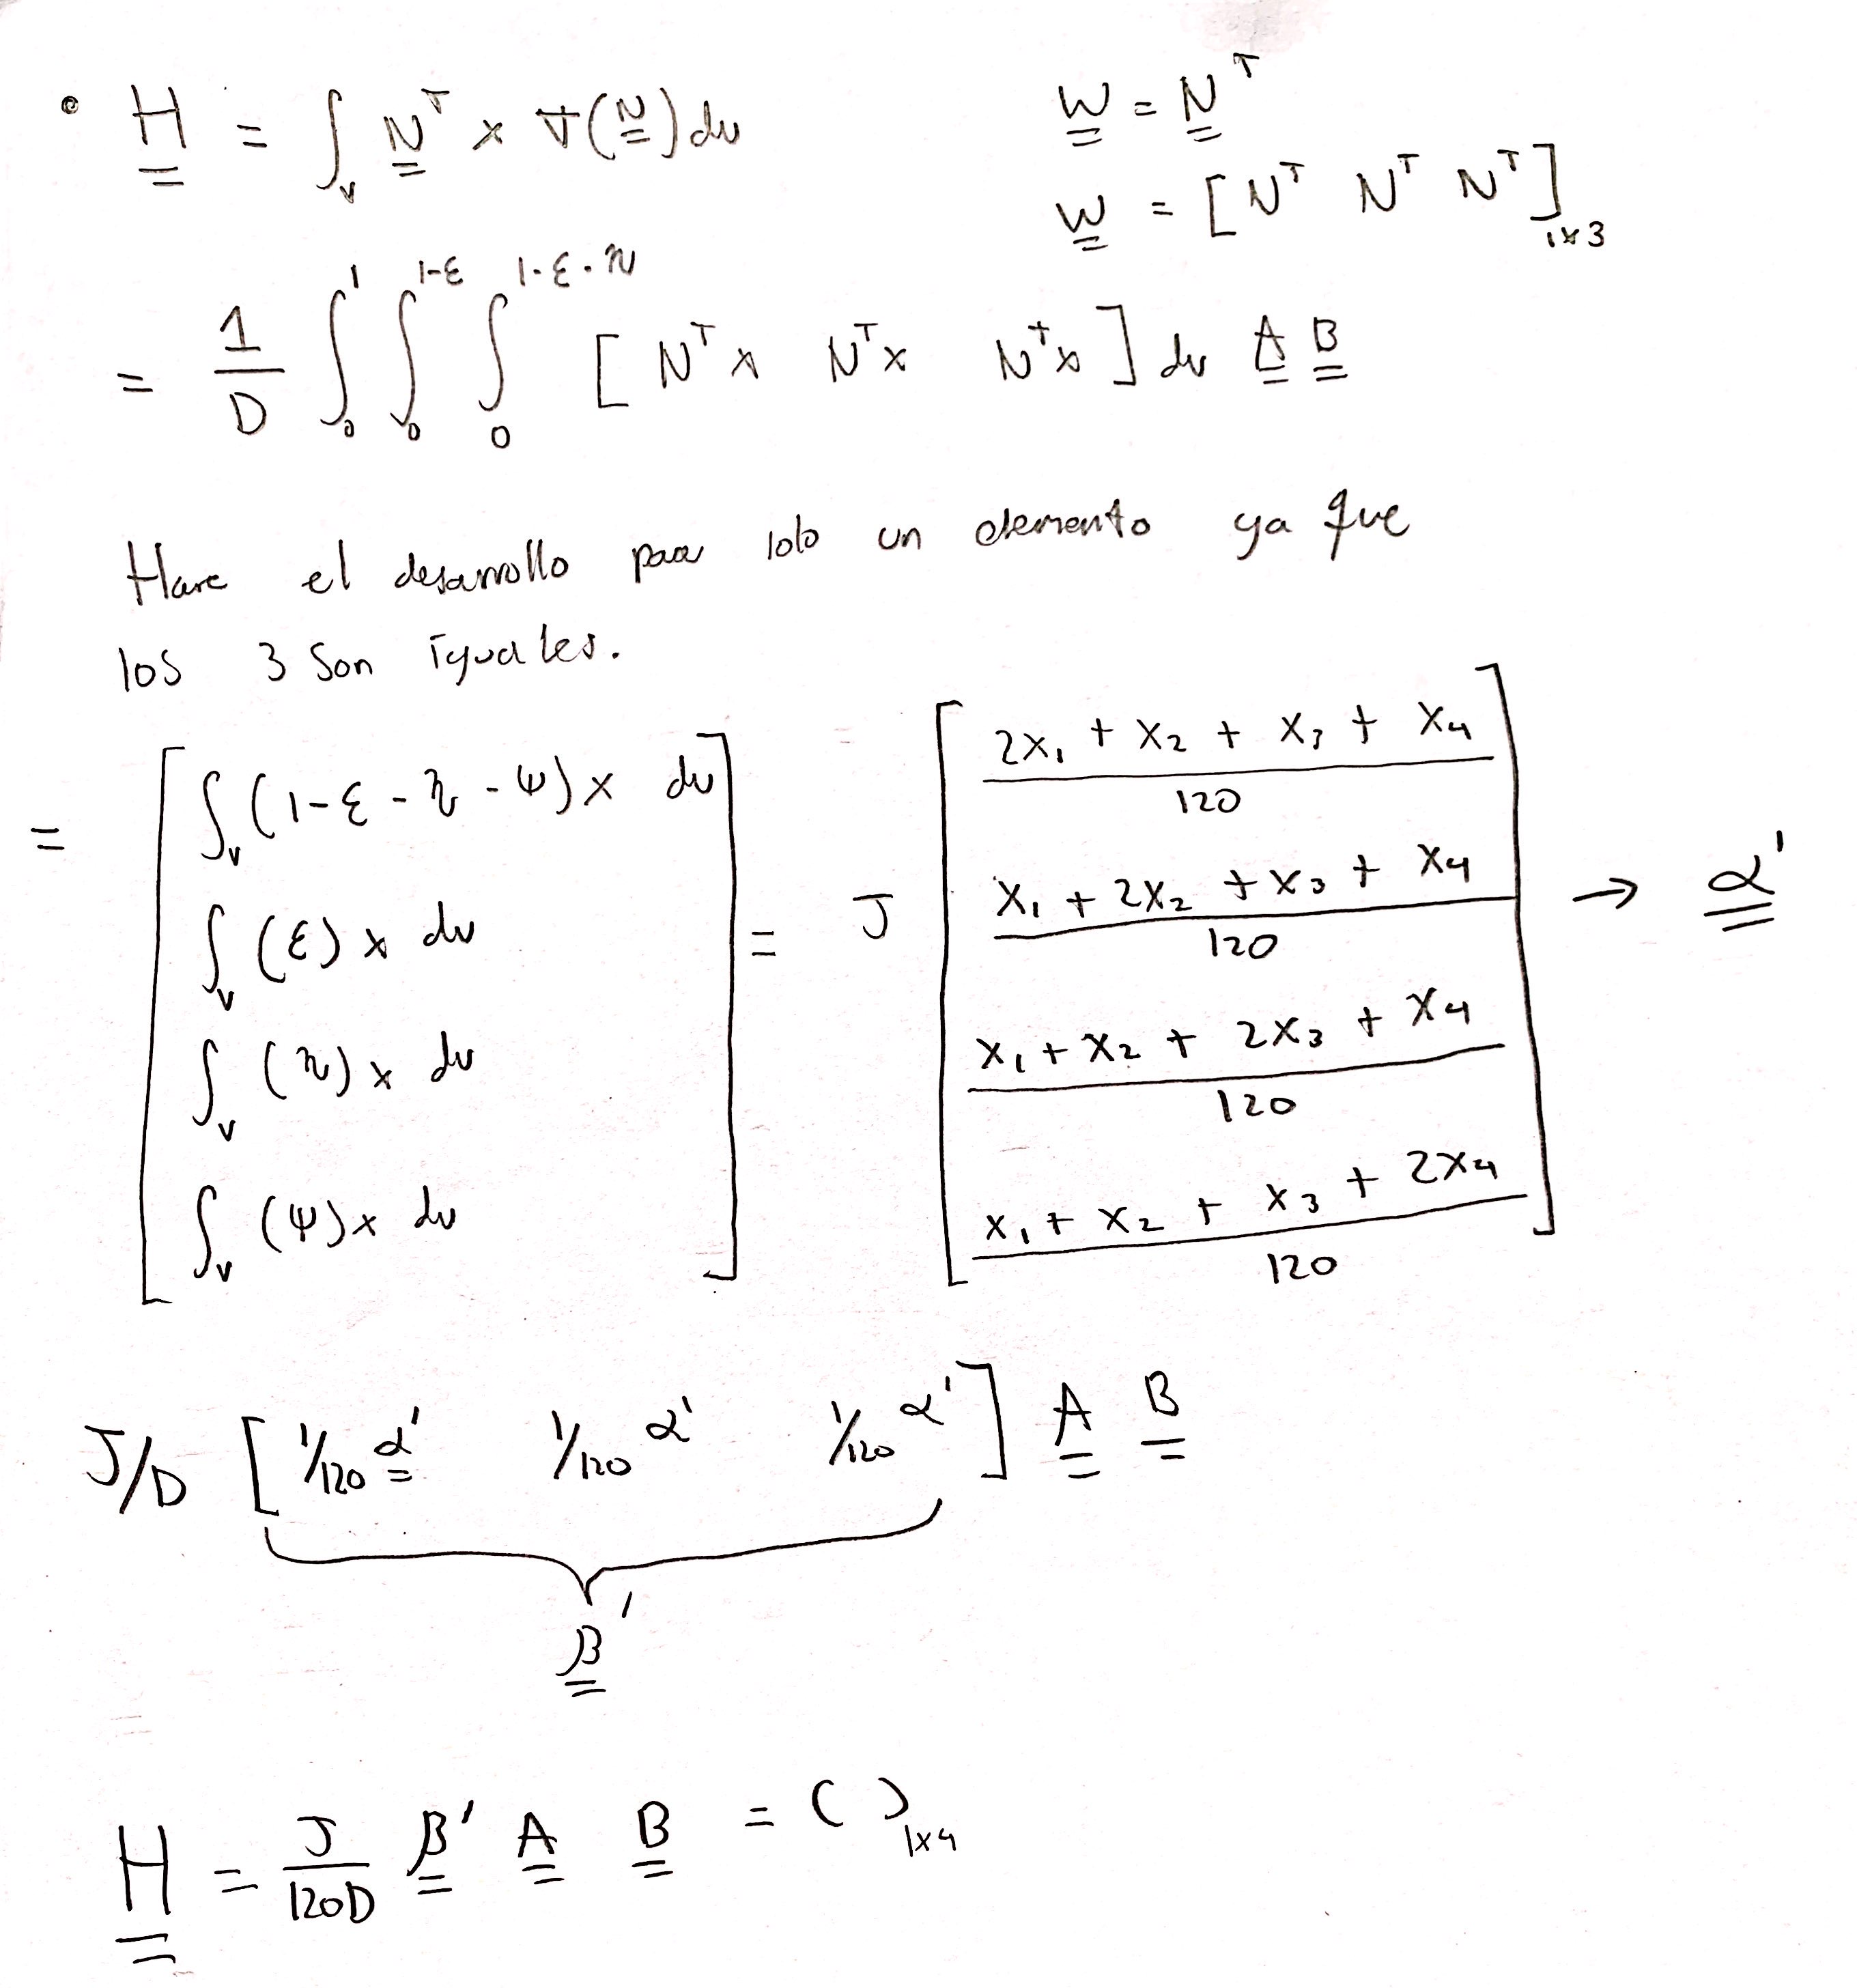 • H = ∫_v N^T x ∇(N) dv
W = N^T
W = [N^T N^T N^T]_1x3
= 1/D ∫_0^1 ∫_0^1-ε ∫_0^1-ε-η [N^T x N^T x N^T x] dv A B
Hare el desarrollo para solo un elemento ya que
los 3 son iguales.
= [ ∫_v (1-ε-η-ψ) x dv ] = J [ (2x₁ + x₂ + x₃ + x₄)/120 ] → α'
∫_v (ε) x dv (x₁ + 2x₂ + x₃ + x₄)/120
∫_v (η) x dv (x₁ + x₂ + 2x₃ + x₄)/120
∫_v (ψ) x dv (x₁ + x₂ + x₃ + 2x₄)/120
J/D [ 1/120 α' 1/120 α' 1/120 α' ] A B
β'
H = J/120D β' A B = ( )_1x4